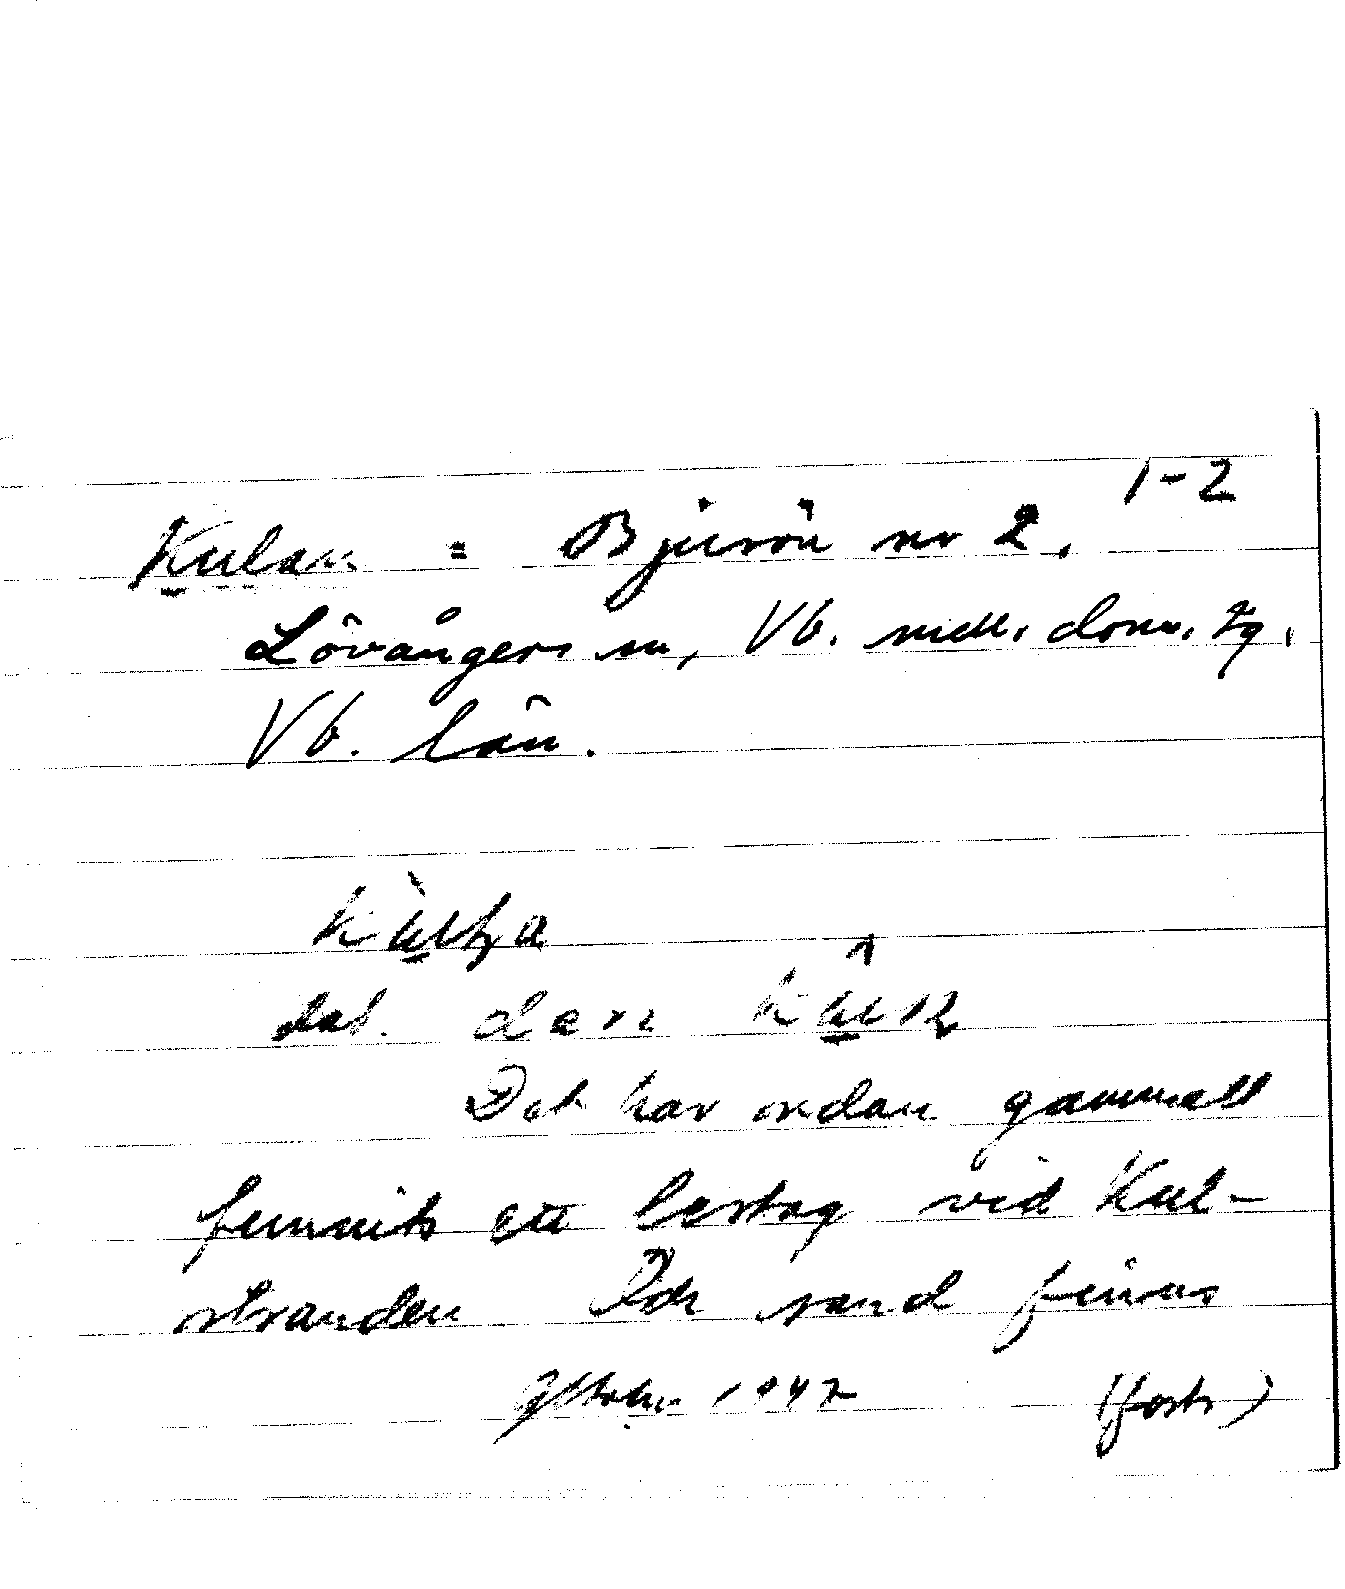 1-2
Kulan = Bjurön nr 2.
Lövångers sn, Vb. mell. doms. tg.
Vb. län.
dat. den
Det har sedan gammalt
funnits ett lastag vid Kul-
stranden Där sand finnes
1947 (forts)